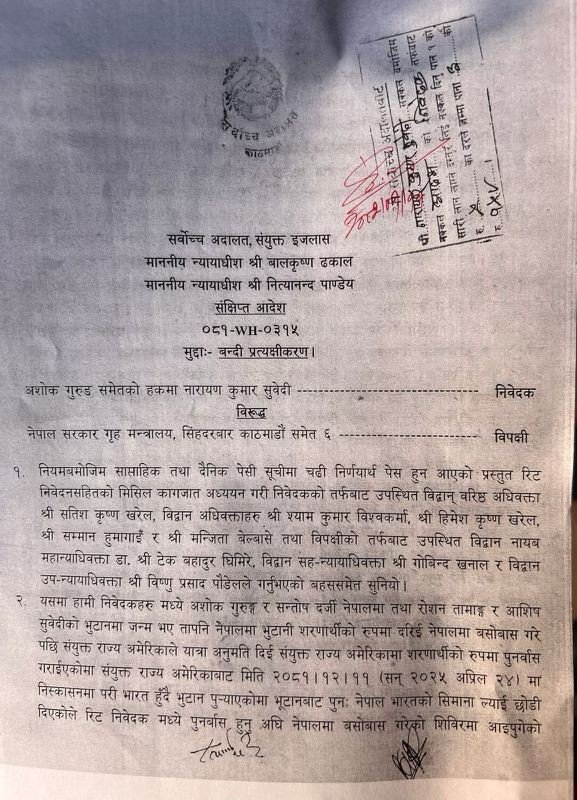 सर्वोच्च अदालत
काठमाडौं
सर्वोच्च अदालत, संयुक्त इजलास
माननीय न्यायाधीश श्री बालकृष्ण ढकाल
माननीय न्यायाधीश श्री नित्यानन्द पाण्डेय
संक्षिप्त आदेश
०८१-WH-०३१५
मुद्दाः- बन्दी प्रत्यक्षीकरण।
अशोक गुरुङ समेतको हकमा नारायण कुमार सुवेदी ------------------------------ निवेदक
विरूद्ध
नेपाल सरकार गृह मन्त्रालय, सिंहदरबार काठमाडौं समेत ६ ----------------------- विपक्षी
१. नियमबमोजिम साप्ताहिक तथा दैनिक पेसी सूचीमा चढी निर्णयार्थ पेस हुन आएको प्रस्तुत रिट
निवेदनसहितको मिसिल कागजात अध्ययन गरी निवेदकको तर्फबाट उपस्थित विद्वान् वरिष्ठ अधिवक्ता
श्री सतिश कृष्ण खरेल, विद्वान अधिवक्ताहरु श्री श्याम कुमार विश्वकर्मा, श्री हिमेश कृष्ण खरेल,
श्री सम्मान हुमागाईं र श्री मन्जिता बेल्वासे तथा विपक्षीको तर्फबाट उपस्थित विद्वान नायब
महान्याधिवक्ता डा. श्री टेक बहादुर घिमिरे, विद्वान सह-न्यायाधिवक्ता श्री गोबिन्द खनाल र विद्वान
उप-न्यायाधिवक्ता श्री विष्णु प्रसाद पौडेलले गर्नुभएको बहससमेत सुनियो।
२. यसमा हामी निवेदकहरु मध्ये अशोक गुरुङ्ग र सन्तोष दर्जी नेपालमा तथा रोशन तामाङ्ग र आशिष
सुवेदीको भुटानमा जन्म भए तापनि नेपालमा भुटानी शरणार्थीको रुपमा दरिई नेपालमा बसोबास गरे
पछि संयुक्त राज्य अमेरिकाले यात्रा अनुमति दिई संयुक्त राज्य अमेरिकामा शरणार्थीको रुपमा पुनर्वास
गराईएकोमा संयुक्त राज्य अमेरिकाबाट मिति २०८१।१२।११ (सन् २०२५ अप्रिल २४) मा
निस्कासनमा परी भारत हुँदै भुटान पुऱ्याएकोमा भूटानबाट पुनः नेपाल भारतको सिमाना ल्याई छोडी
दिएकोले रिट निवेदक मध्ये पुनर्वास हुनु अघि नेपालमा बसोबास गरेको शिविरमा आइपुगेको